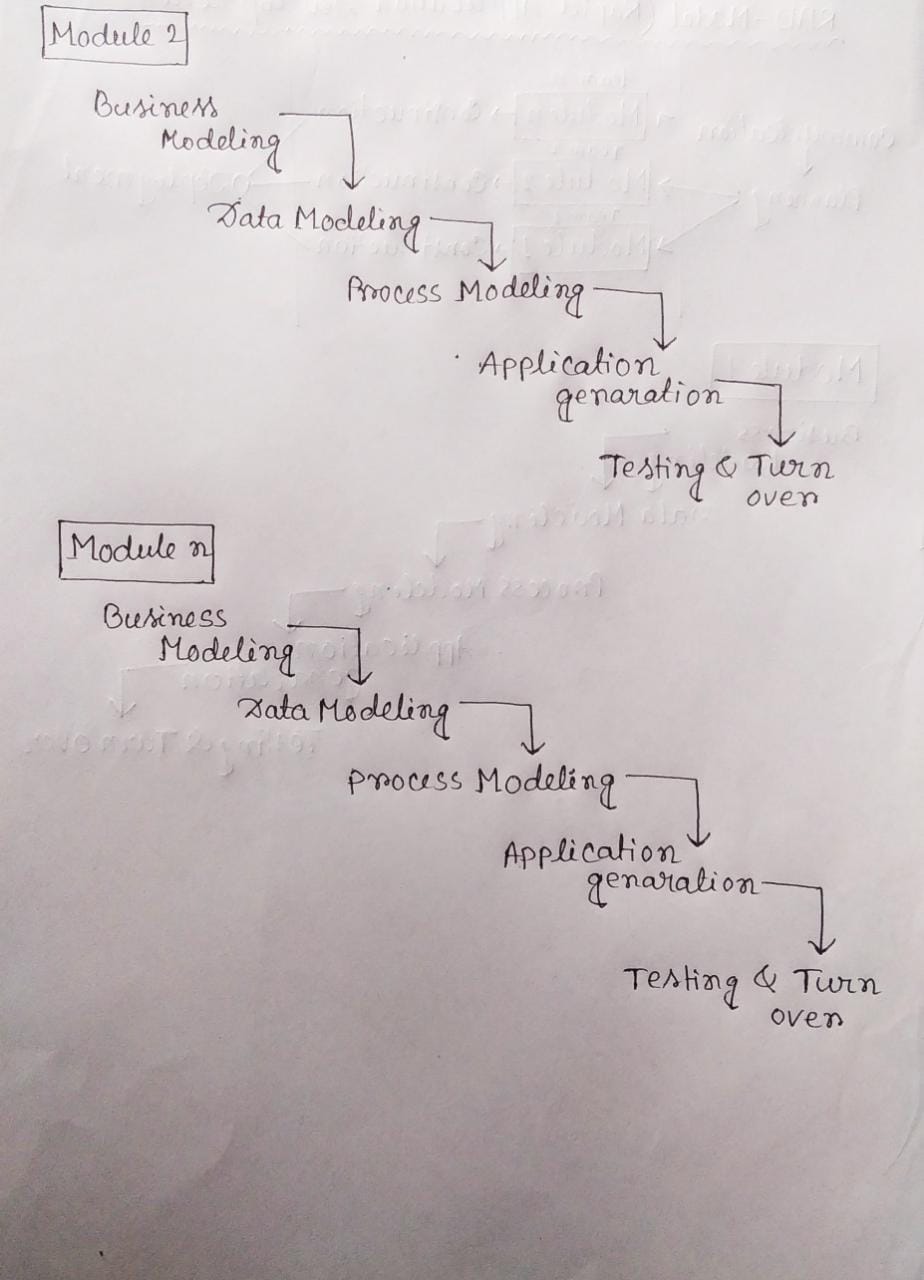 Module 2
Business
Modeling
Data Modeling
Process Modeling
Application
genaration
Testing & Turn
over
Module n
Business
Modeling
Data Modeling
Process Modeling
Application
genaration
Testing & Turn
over